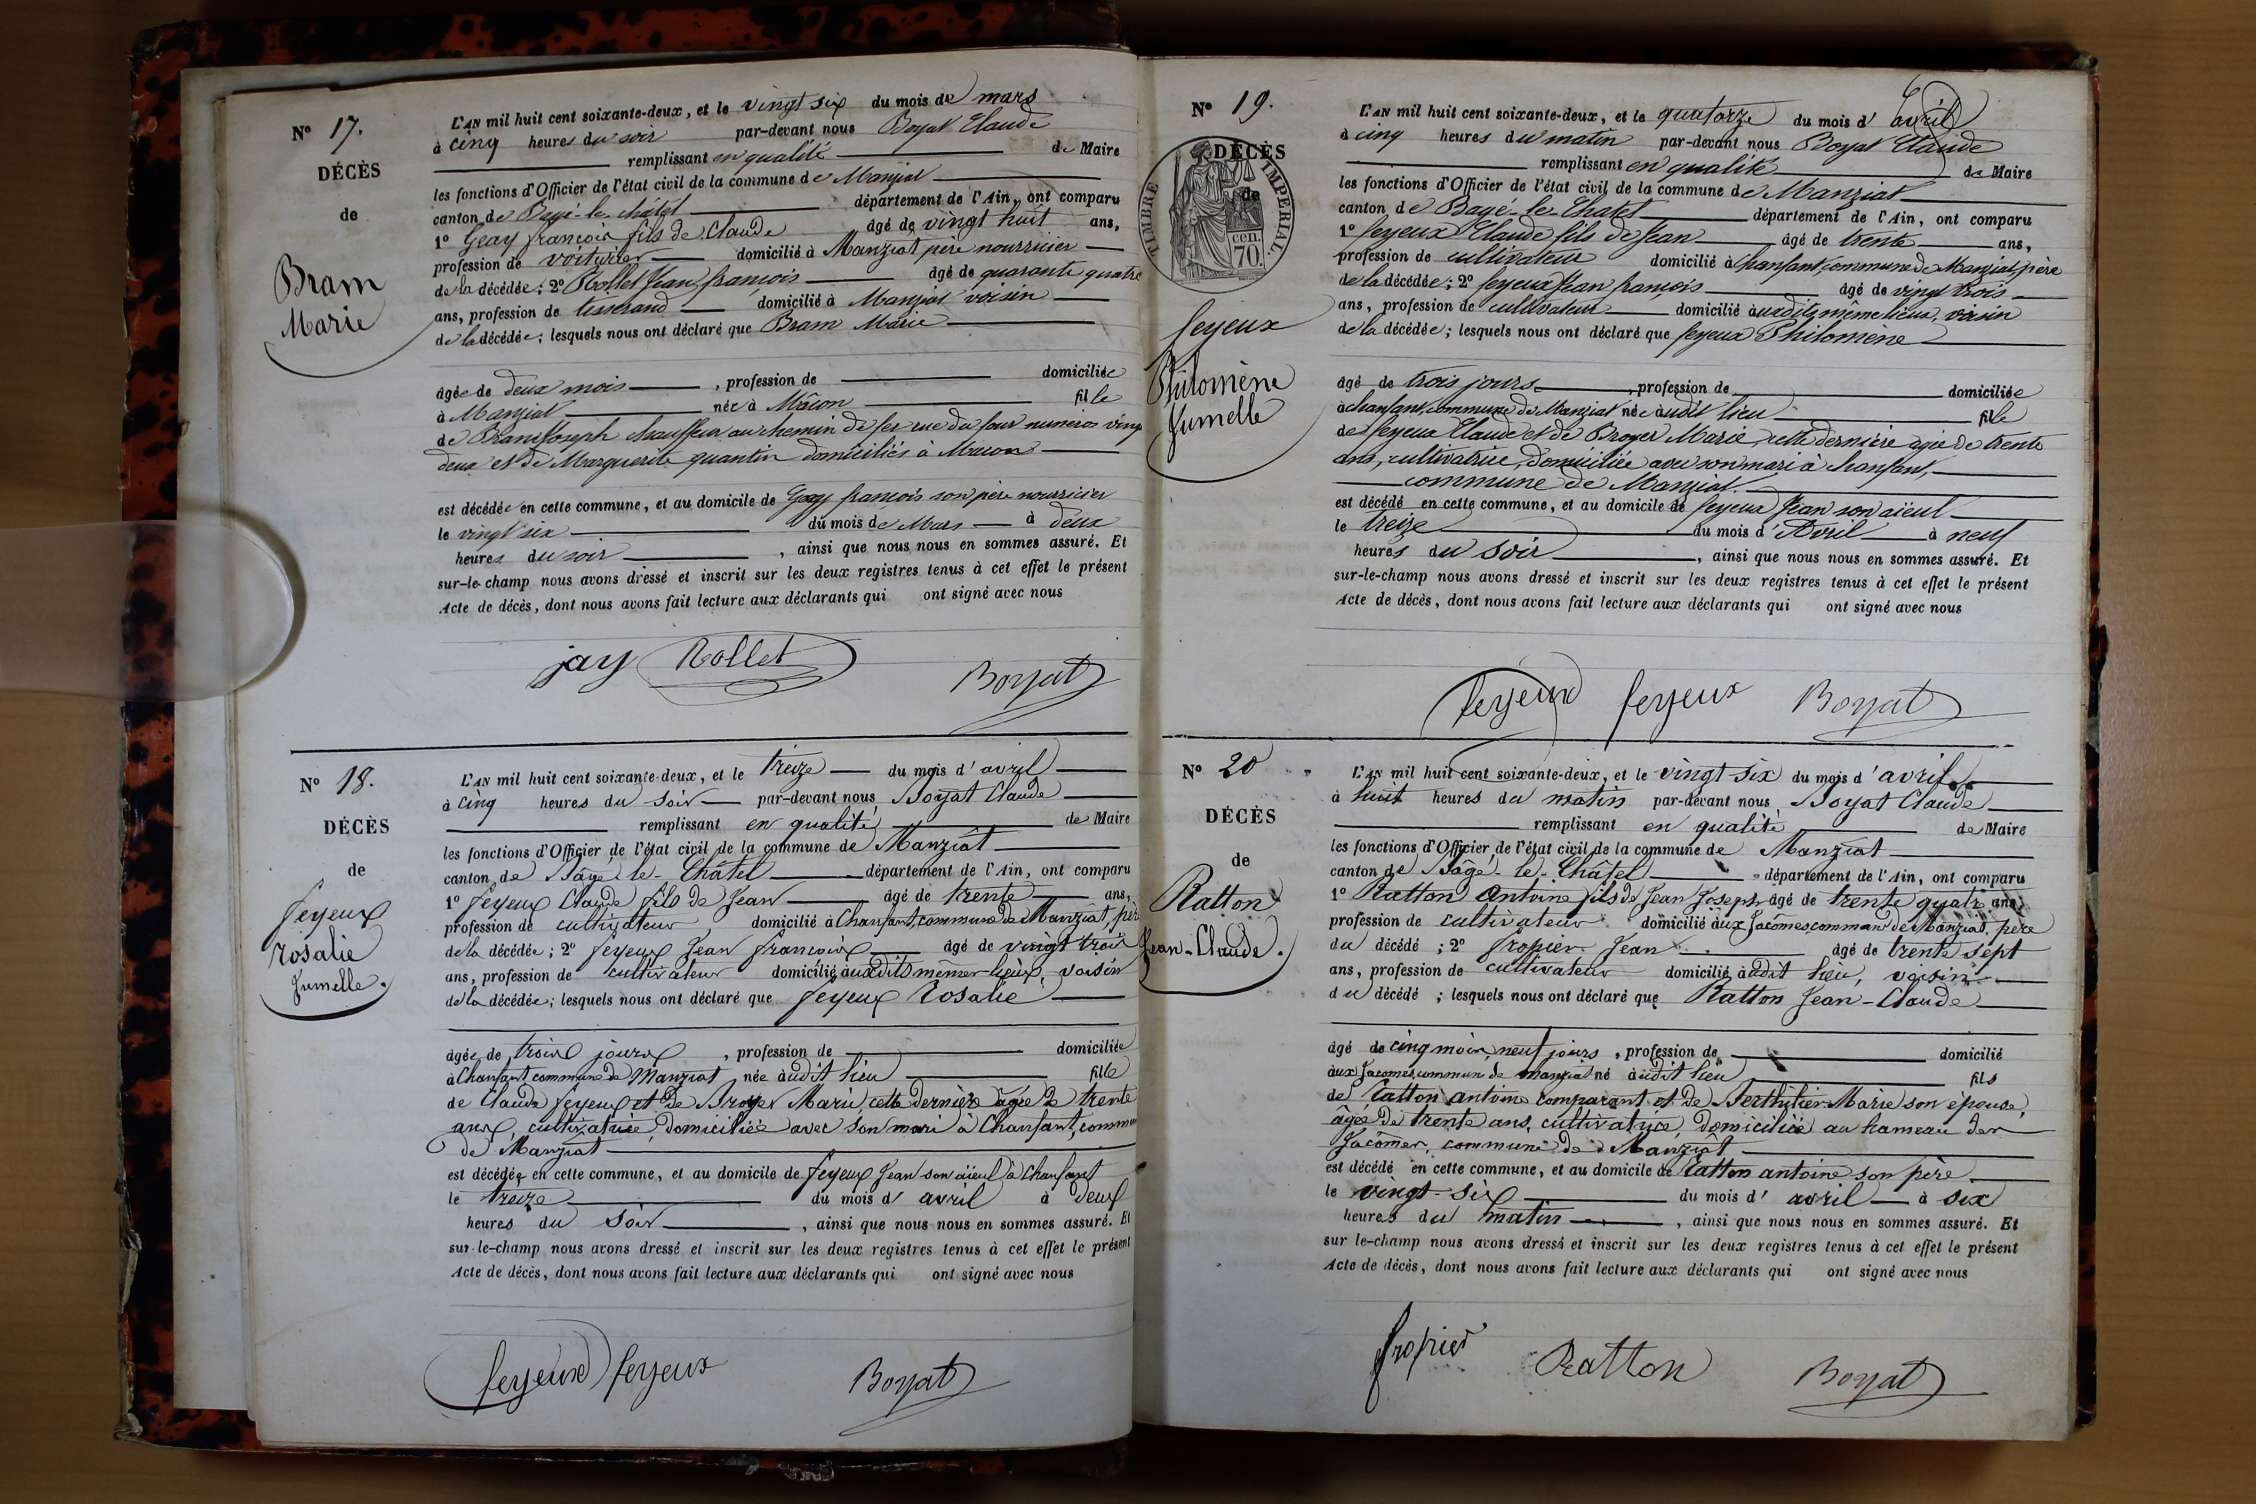 N° 17.
DÉCÈS
de
Bram
Marie
L'AN mil huit cent soixante-deux, et le vingt six du mois de mars
à cinq heures du soir par-devant nous Boyat Claude
remplissant en qualité de Maire
les fonctions d'Officier de l'état civil de la commune de Manziat
canton de Bagé-le-châtel département de l'Ain, ont comparu
1° Geay françois fils de Claude âgé de vingt huit ans,
profession de voiturier domicilié à Manziat père nourricier
de la décédée ; 2° Rollet Jean françois âgé de quarante quatre
ans, profession de tisserand domicilié à Manziat voisin
de la décédée ; lesquels nous ont déclaré que Bram Marie
âgée de deux mois , profession de domiciliée
à Manziat née à Mâcon fille
de Bram Joseph chauffeur au chemin de fer rue du four numéros vingt
deux et de Marguerite quantin domiciliés à Macon
est décédée en cette commune, et au domicile de Geay francois son père nourricier
le vingt six du mois de Mars à deux
heures du soir , ainsi que nous nous en sommes assuré. Et
sur-le-champ nous avons dressé et inscrit sur les deux registres tenus à cet effet le présent
Acte de décès, dont nous avons fait lecture aux déclarants qui ont signé avec nous
jay Rollet Boyat
N° 18.
DÉCÈS
de
feyeux
Rosalie
Jumelle.
L'AN mil huit cent soixante-deux, et le treize du mois d'avril
à cinq heures du soir par-devant nous Boyat Claude
remplissant en qualité de Maire
les fonctions d'Officier de l'état civil de la commune de Manziat
canton de Bâgé-le-Châtel département de l'Ain, ont comparu
1° feyeux Claude fils de Jean âgé de trente ans,
profession de cultivateur domicilié à Chanfant, commune de Manziat, père
de la décédée ; 2° feyeux Jean françois âgé de vingt trois
ans, profession de cultivateur domicilié auxdits mêmes lieux, voisin
de la décédée ; lesquels nous ont déclaré que feyeux Rosalie
âgée de trois jours , profession de domiciliée
à Chanfant commune de Manziat née audit lieu fille
de Claude feyeux et de Broyer Marie, cette dernière âgée de trente
ans, cultivatrice, domiciliée avec son mari à Chanfant, commune
de Manziat
est décédée en cette commune, et au domicile de feyeux Jean son aïeul à Chanfant
le treize du mois d'avril à deux
heures du soir , ainsi que nous nous en sommes assuré. Et
sur-le-champ nous avons dressé et inscrit sur les deux registres tenus à cet effet le présent
Acte de décès, dont nous avons fait lecture aux déclarants qui ont signé avec nous
feyeux feyeux Boyat
N° 19.
DÉCÈS
de
TIMBRE IMPÉRIAL.
cen.
70
feyeux
Philomène
Jumelle
L'AN mil huit cent soixante-deux, et le quatorze du mois d'avril
à cinq heures du matin par-devant nous Boyat Claude
remplissant en qualité de Maire
les fonctions d'Officier de l'état civil de la commune de Manziat
canton de Bagé-le-Chatel département de l'Ain, ont comparu
1° feyeux Claude fils de Jean âgé de trente ans,
profession de cultivateur domicilié à Chanfant, commune de Manziat, père
de la décédée ; 2° feyeux Jean françois âgé de vingt trois
ans, profession de cultivateur domicilié auxdits même lieux, voisin
de la décédée ; lesquels nous ont déclaré que feyeux Philomène
âgé de trois jours , profession de domiciliée
à chanfant, commune de Manziat née audit lieu fille
de feyeux Claude et de Broyer Marie, cette dernière agée de trente
ans, cultivatrice, domiciliée avec son mari à Chanfant,
commune de Manziat.
est décédé en cette commune, et au domicile de feyeux Jean son aïeul
le treize du mois d'Avril à neuf
heures du soir , ainsi que nous nous en sommes assuré. Et
sur-le-champ nous avons dressé et inscrit sur les deux registres tenus à cet effet le présent
Acte de décès, dont nous avons fait lecture aux déclarants qui ont signé avec nous
feyeux feyeux Boyat
N° 20
DÉCÈS
de
Ratton
Jean-Claude.
L'AN mil huit cent soixante-deux, et le vingt six du mois d'avril
à huit heures du matin par-devant nous Boyat Claude
remplissant en qualité de Maire
les fonctions d'Officier de l'état civil de la commune de Manziat
canton de Bâgé-le-Châtel département de l'Ain, ont comparu
1° Ratton Antoine fils de Jean Joseph âgé de trente quatre ans,
profession de cultivateur domicilié aux Jacômes, commune de Manziat, père
du décédé ; 2° fropier Jean âgé de trente sept
ans, profession de cultivateur domicilié audit lieu, voisin
du décédé ; lesquels nous ont déclaré que Ratton Jean-Claude
âgé de cinq mois, neuf jours , profession de domicilié
aux Jacomes, commun de manziat né audit lieu fils
de Ratton antoine comparant et de Berthilier Marie son épouse,
âgée de trente ans, cultivatrice, domiciliée au hameau des
Jacômes, commune de Manziat
est décédé en cette commune, et au domicile de Ratton antoine son père
le vingt-six du mois d'avril à six
heures du matin , ainsi que nous nous en sommes assuré. Et
sur le-champ nous avons dressé et inscrit sur les deux registres tenus à cet effet le présent
Acte de décès, dont nous avons fait lecture aux déclarants qui ont signé avec nous
fropier Ratton Boyat